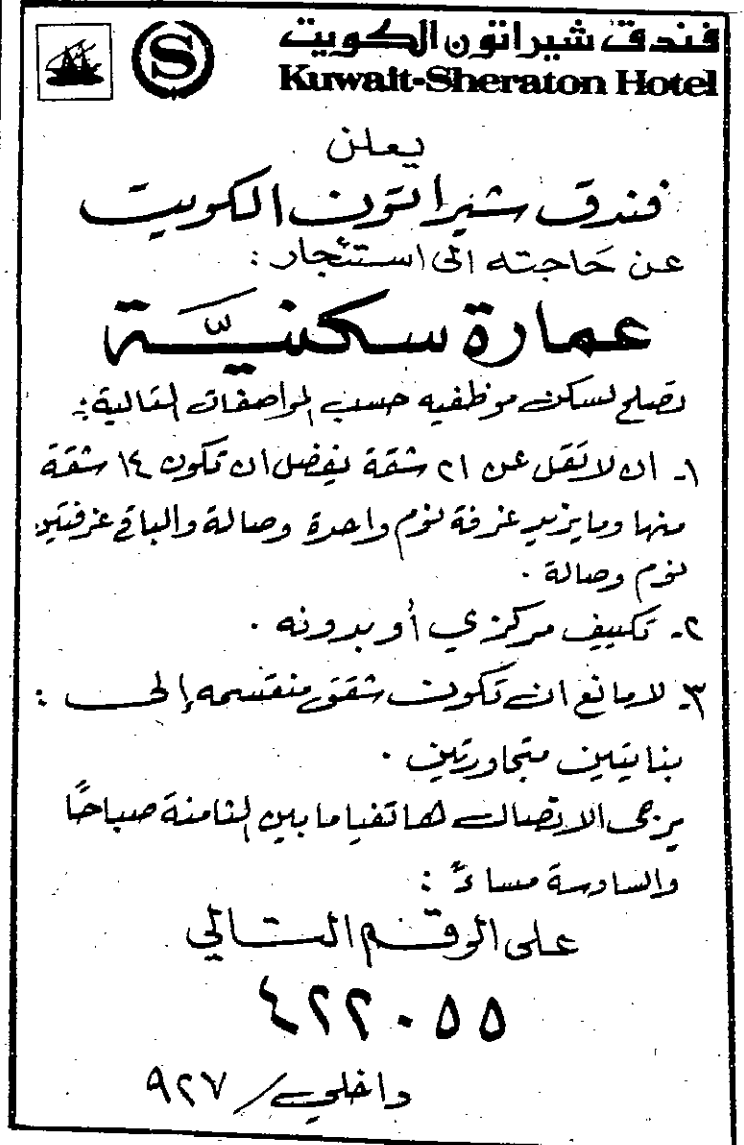 فندق شيراتون الكويت
Kuwait-Sheraton Hotel
S
يعلن
فندق شيراتون الكويت
عن حَاجته الى استئجار :
عمارة سكنيّة
تصلح لسكن موظفيه حسب المواصفات التالية :
١- ان لا تقل عن ٢١ شقة يفضل ان تكون ١٤ شقة
منها وما يزيد غرفة نوم واحدة وصالة والباقي غرفتين
نوم وصالة .
٢- تكييف مركزي أو بدونه .
٣- لا مانع ان تكون شقق منقسمه إلى :
بنايتين متجاورتين .
يرجى الاتصال هاتفيا ما بين الثامنة صباحًا
والسادسة مساءً :
على الرقم التالي
٤٢٢٠٥٥
داخلي / ٩٢٧